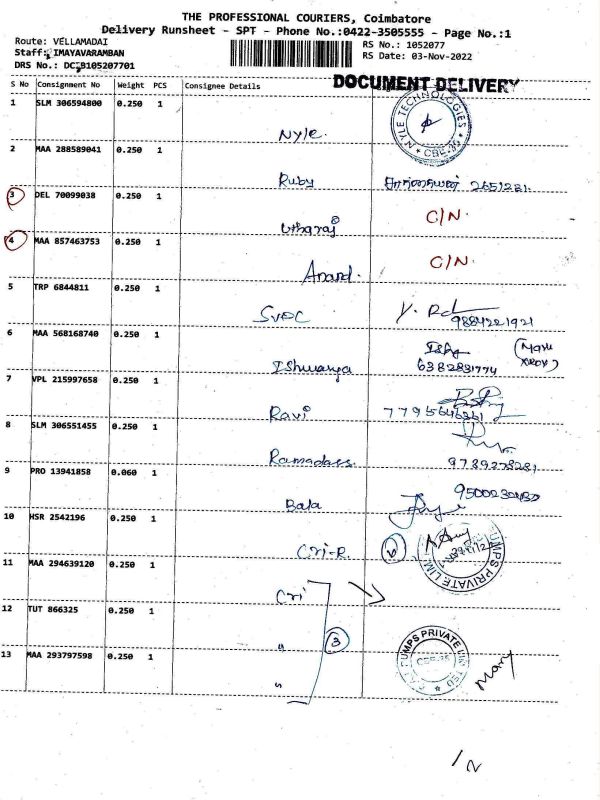 THE PROFESSIONAL COURIERS, Coimbatore
Delivery Runsheet - SPT - Phone No.:0422-3505555 - Page No.:1
Route: VELLAMADAI
RS No.: 1052077
Staff: IMAYAVARAMBAN
RS Date: 03-Nov-2022
DRS No.: DC_B105207701
DOCUMENT DELIVERY
S No Consignment No Weight PCS Consignee Details
1 SLM 306594800 0.250 1
Nyle.
NYLE TECHNOLOGIES
CBE-35
2 MAA 288589041 0.250 1
Ruby 2651281
3 DEL 70099038 0.250 1
C/N
4 MAA 857463753 0.250 1
Anand. C/N.
5 TRP 6844811 0.250 1
9884221921
6 MAA 568168740 0.250 1
Ishwarya 6382831774
7 VPL 215997658 0.250 1
Ravi
8 SLM 306551455 0.250 1
Ramadass 9789278281
9 PRO 13941858 0.060 1
Bala
10 HSR 2542196 0.250 1
Cri-R.
UMPS PRIVATE LIM
11 MAA 294639120 0.250 1
Cri
12 TUT 866325 0.250 1
" 3
UMPS PRIVATE LIMITED
CBE-35
13 MAA 293797598 0.250 1
" Mary